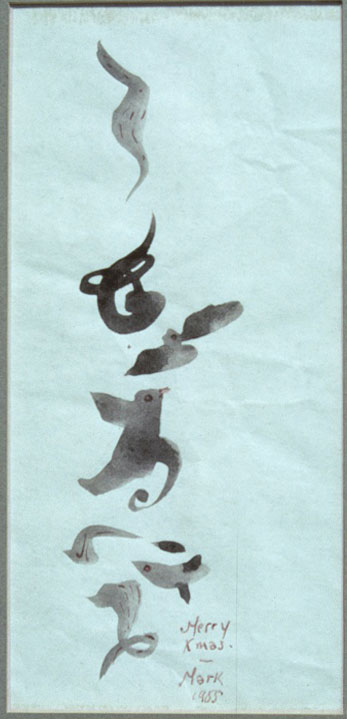 Merry
Xmas.
—
Mark
1955